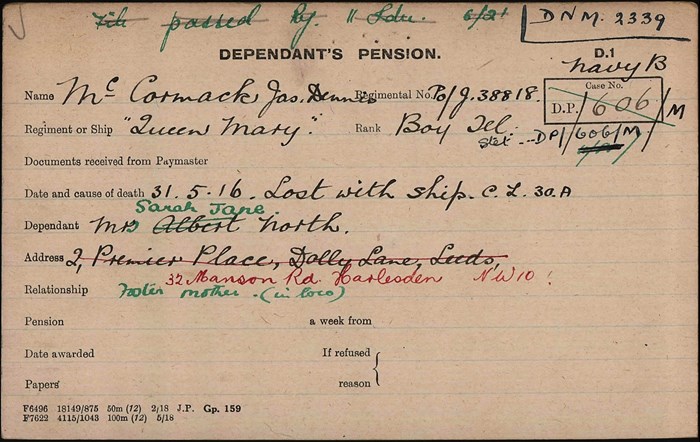 File passed Reg. 11 Ldn. 6/21
DNM. 2339
DEPENDANT'S PENSION.
D.1
Navy B
Name Mc Cormack Jas. Dennis Regimental No. Po/J.38818.
Case No.
D.P./606/M
Regiment or Ship "Queen Mary". Rank Boy Tel.
stet --- DP/606/M
Documents received from Paymaster
Date and cause of death 31.5.16. Lost with ship. C.L. 30.A
Sarah Jane
Dependant Mrs Albert North.
Address 2, Premier Place, Dolly Lane, Leeds,
32 Manson Rd. Harlesden NW10!
Relationship Foster mother. (in loco)
Pension a week from
Date awarded If refused
Papers reason
F6496 18149/875 50m (12) 2/18 J.P. Gp. 159
F7622 4115/1043 100m (12) 5/18